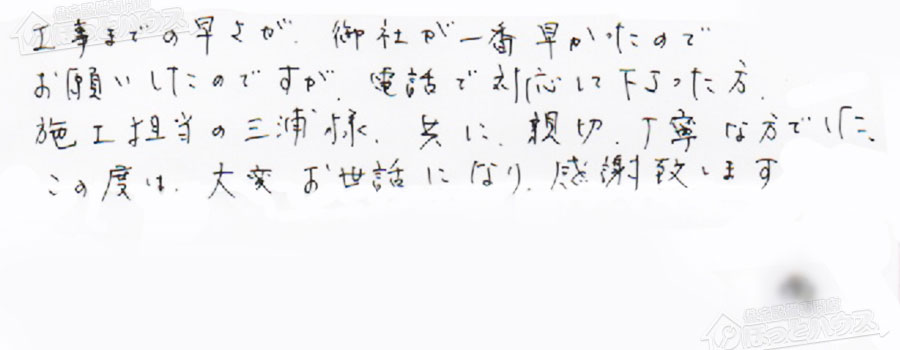 工事までの早さが、御社が一番早かったので
お願いしたのですが、電話で対応して下さった方、
施工担当の三浦様、共に、親切、丁寧な方でした。
この度は、大変お世話になり、感謝致します
ほっとハウス